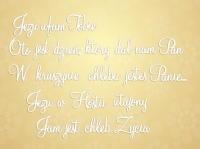 Jezu ufam Tobie
Oto jest dzień, który dał nam Pan
W kruszynie chleba jesteś Panie...
Jezu w Hostii utajony
Jam jest chleb Życia